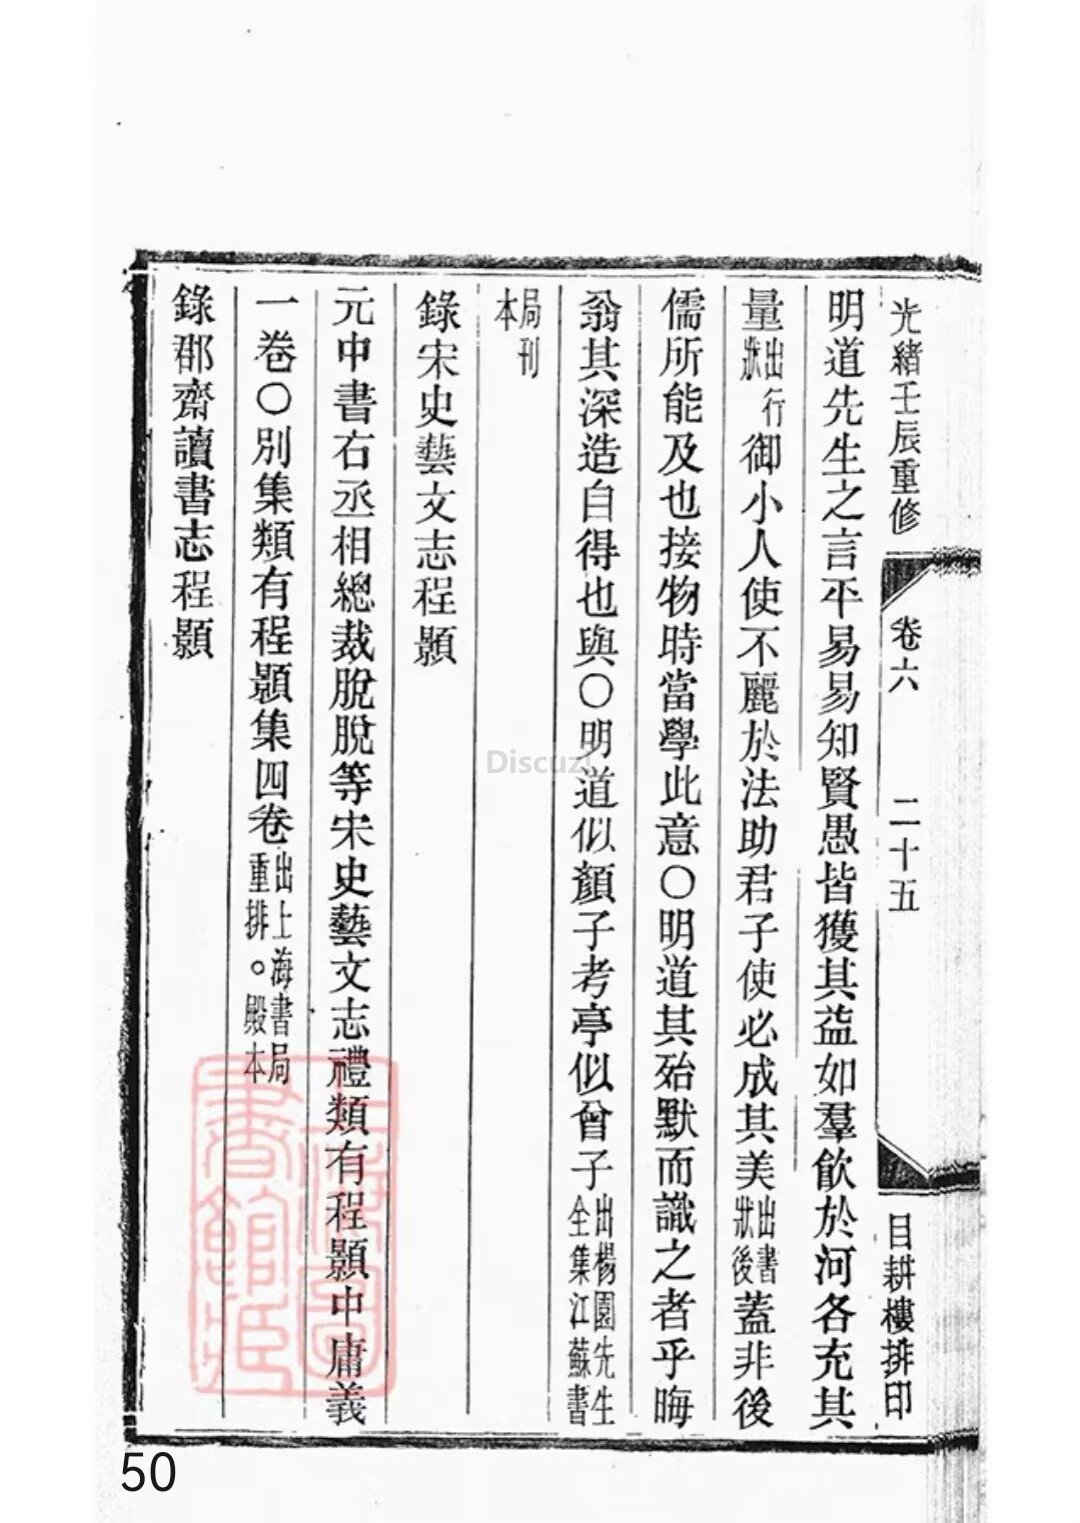 光緒壬辰重修
卷六
二十五
目耕樓排印
明道先生之言平易易知賢愚皆獲其益如羣飲於河各充其
量出行狀御小人使不麗於法助君子使必成其美出書狀後蓋非後
儒所能及也接物時當學此意〇明道其殆默而識之者乎晦
翁其深造自得也與〇明道似顏子考亭似曾子出楊園先生全集江蘇書
局刊本
錄宋史藝文志程顥
元中書右丞相總裁脫脫等宋史藝文志禮類有程顥中庸義
一卷〇別集類有程顥集四卷出上海書局重排。殿本
錄郡齋讀書志程顥
Discuz!
50